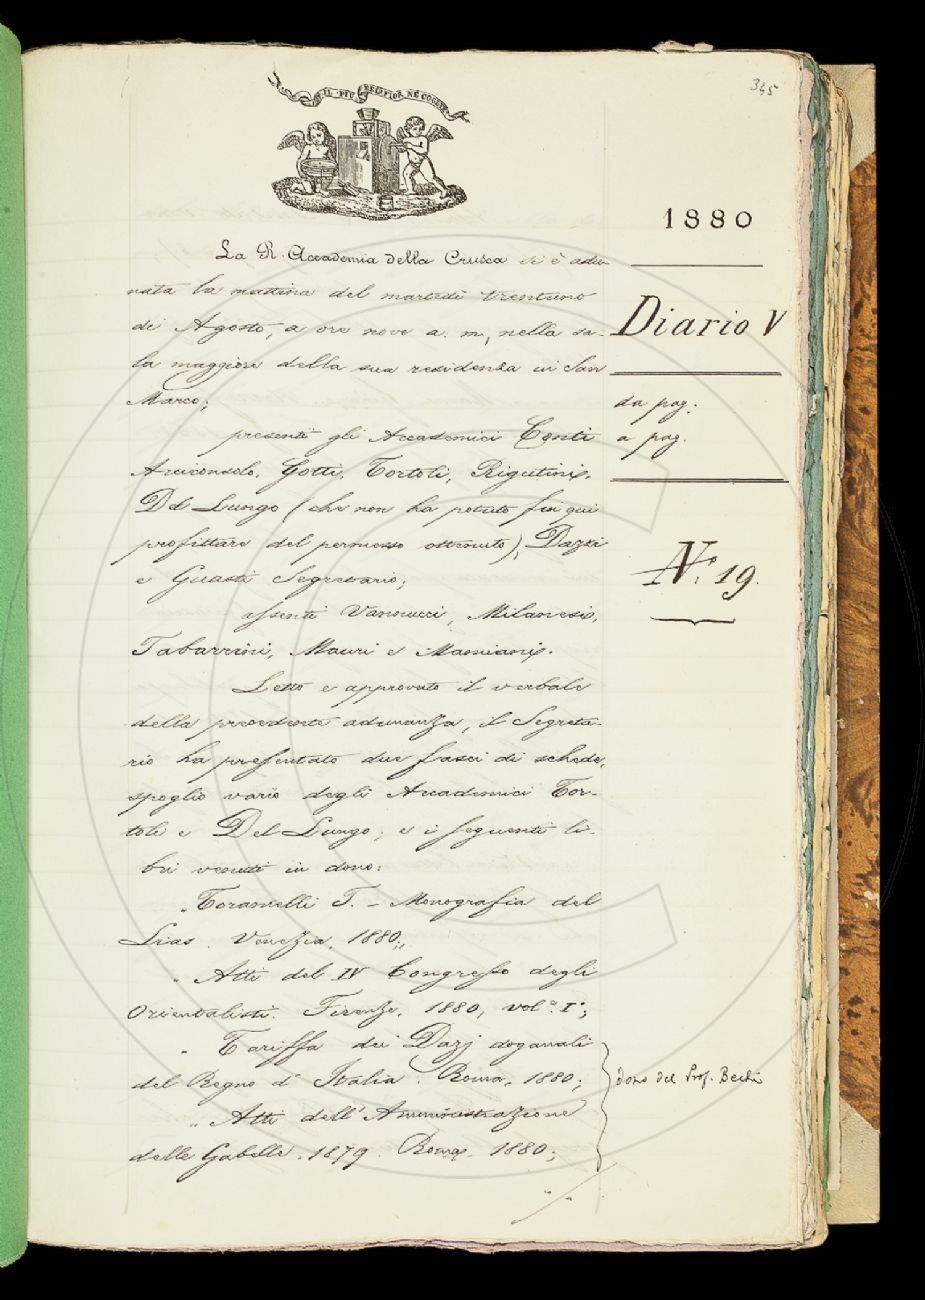 345
IL PIÙ BEL FIOR NE COGLIE
1880
La R. Accademia della Crusca si è adu-
nata la mattina del martedì trentuno
di Agosto, a ore nove a. m, nella sa-
la maggiore della sua residenza in San
Marco;
Diario V
da pag:
a pag.
N.º 19.
presenti gli Accademici Conti
Arciconsolo, Gotti, Tortoli, Rigutini,
Del Lungo (che non ha potuto fin qui
profittare del permesso ottenuto), Dazzi
e Guasti Segretario;
assenti Vannucci, Milanesi,
Tabarrini, Mauri e Mamiani.
Letto e approvato il verbale
della precedente adunanza, il Segreta-
rio ha presentato due fasci di schede,
spoglio vario degli Accademici Tor-
toli e Del Lungo; e i seguenti li-
bri venuti in dono:
„Taramelli T. - Monografia del
Lias. Venezia, 1880;„
„ Atti del IV Congresso degli
Orientalisti. Firenze, 1880, vol.º I°;
„ Tariffa dei Dazj doganali
del Regno d'Italia. Roma, 1880;
„ Atti dell'Amministrazione
delle Gabelle. 1879. Roma, 1880;
dono del Prof. Bechi